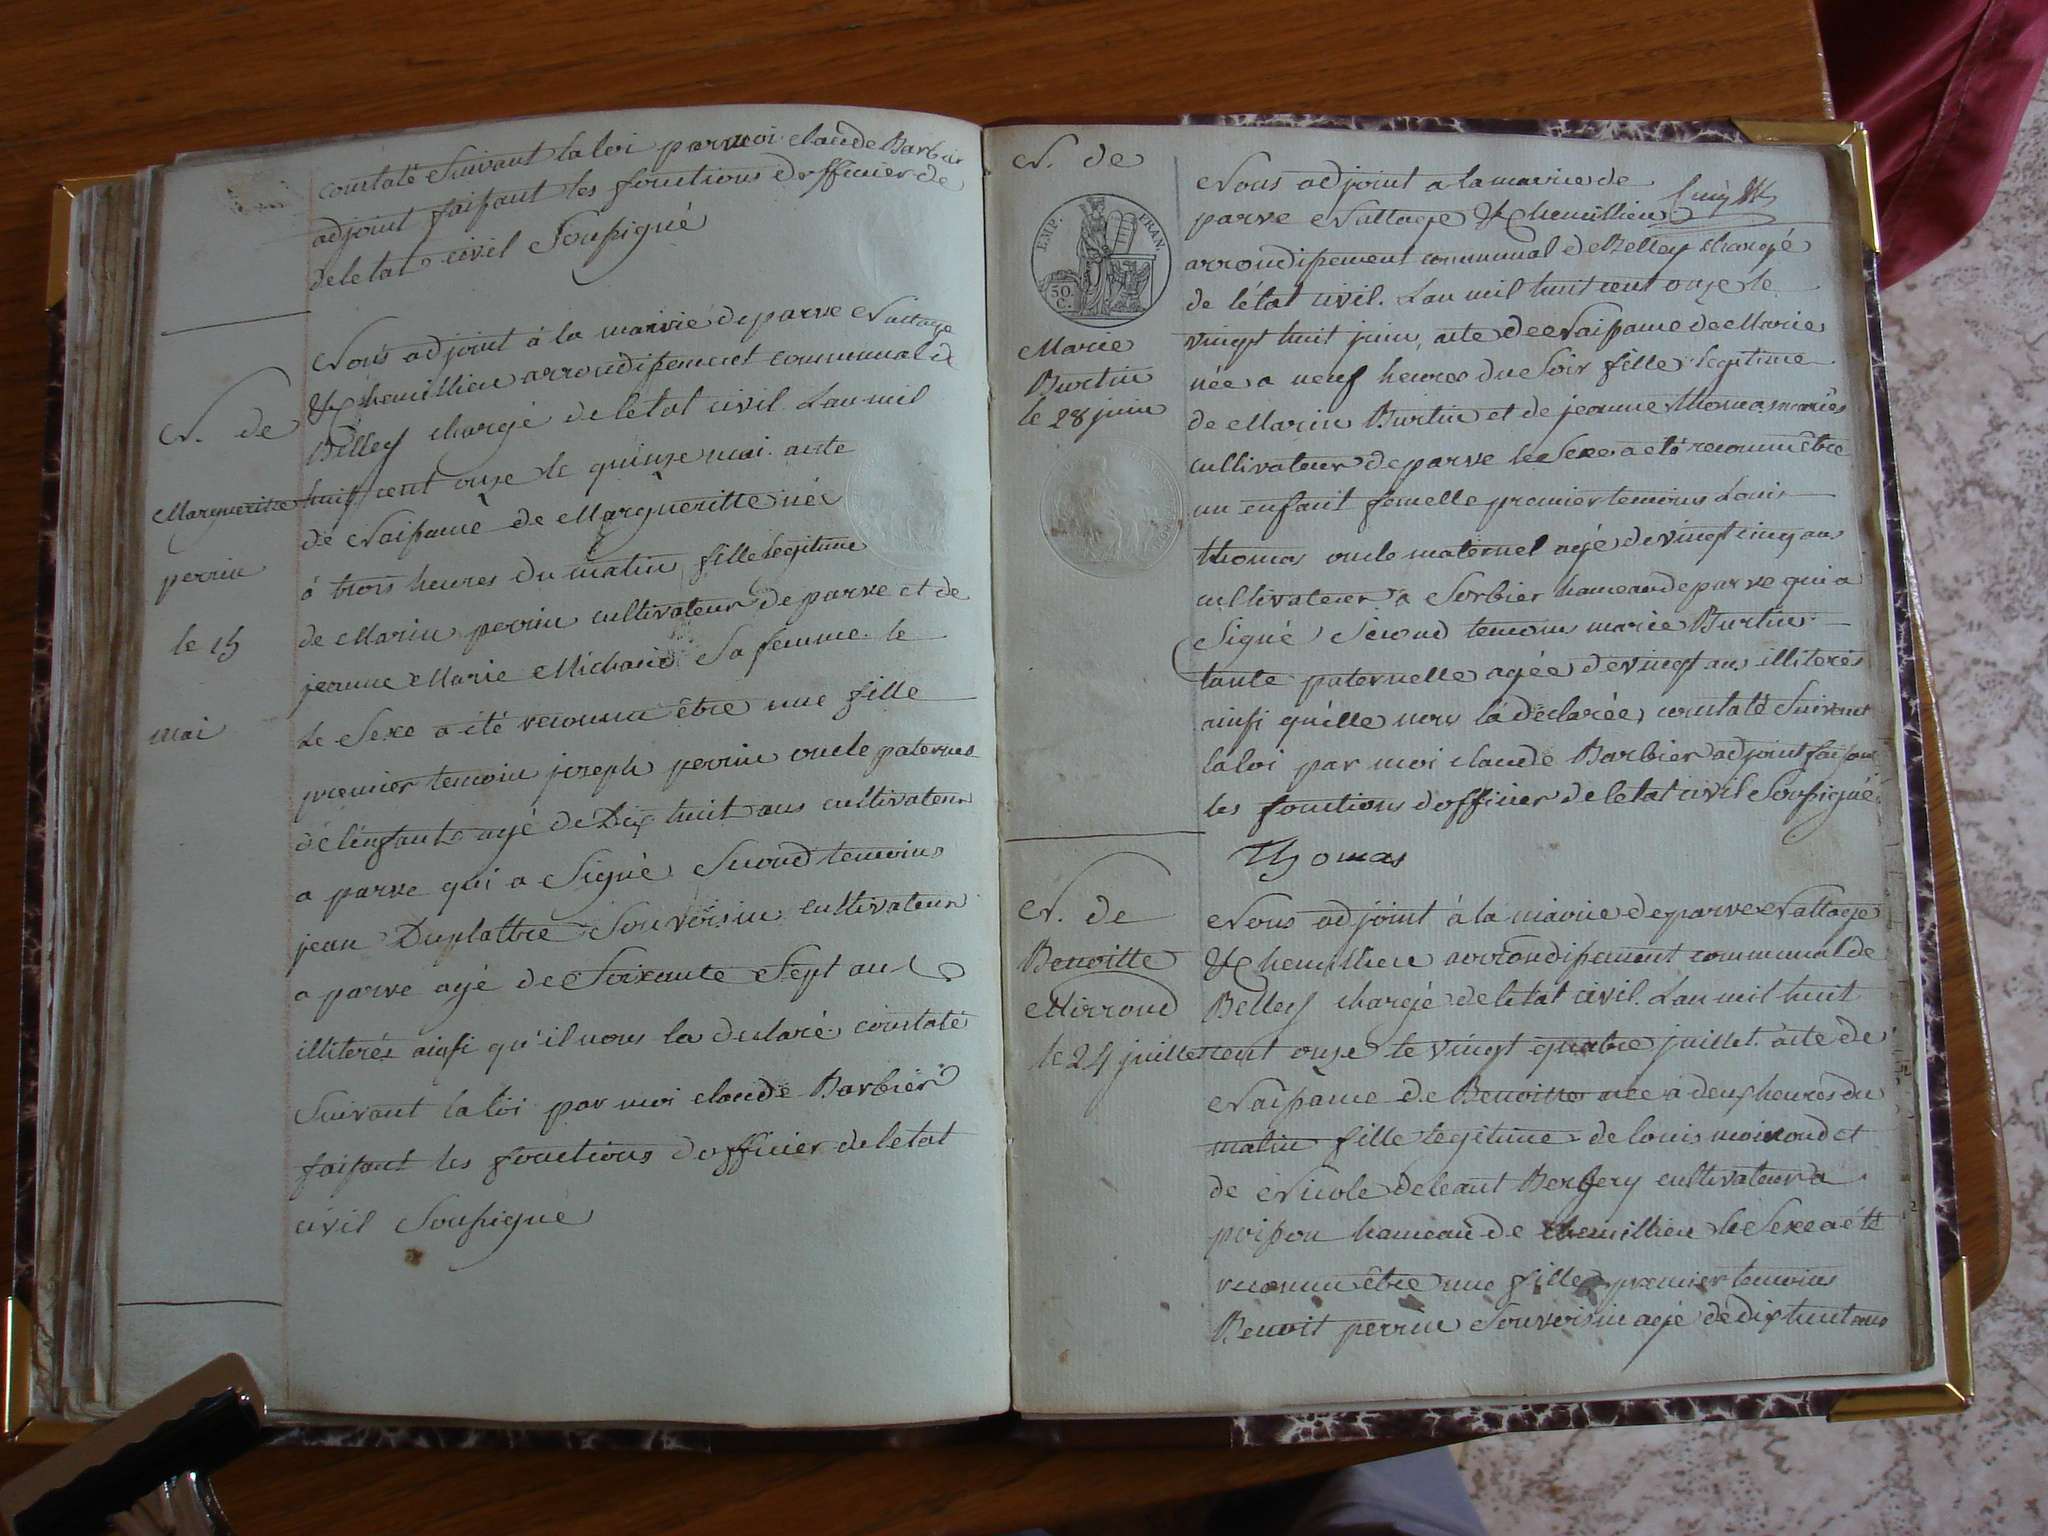 constaté Suivant la loi par moi claude Barbier
adjoint faisant les fonctions d'officier de
de letat civil Soussigné
Nous adjoint à la mairie de parve Nattage
& chemillieu arrondissement communal de
N. de
Belley chargé de letat civil. Lan mil
Margueritte huit cent onze le quinze mai. acte
de Naissance de Margueritte née
perrin
à trois heures du matin, fille legitime
de Marin perrin cultivateur de parve et de
le 15
jeanne Marie Michaud Sa femme. le
mai
Le Sexe a été reconnu être une fille
premier temoin joseph perrin oncle paternel
de l'enfant agé de Dix huit ans cultivateur
a parve qui a Signé Second temoins
jean Duplattre Son voisin cultivateur
a parve agé de Soixante Sept ans
illiterés ainsi qu'il nous la declaré constaté
Suivant la loi par moi claude Barbier
faisant les fonctions d'officier de letat
civil Soussigné
N. de
Nous adjoint a la mairie de
parve Nattage & chemillieu
EMP. FRAN.
50 C.
arrondissement communal de Belley chargé
de létat civil. Lan mil huit cent onze le
vingt huit juin, acte de Naissance de Marie
Marie
née a neuf heures du Soir fille legitime
Burtin
le 28 juin
de Marin Burtin et de jeanne thomas mariés
cultivateur de parve le Sexe a été reconnu être
un enfant femelle premier temoins Louis
thomas oncle maternel agé de vingt cinq ans
cultivateur a Sorbier hameau de parve qui a
Signé Second temoin marie Burtin
tante paternelle agée de vingt ans illiterés
ainsi quélle nous la declarée, constaté Suivant
la loi par moi claude Barbier adjoint faisant
les fonctions d'officier de letat civil Soussigné.
Thomas
N. de
Nous adjoint à la mairie de parve Nattage
Benoitte
& chemillieu arrondissement communal de
Mirrond
Belley chargé de letat civil. Lan mil huit
le 24 juillet cent onze le vingt quatre juillet. acte de
Naissance de Benoitte née à deux heures du
matin fille legitime de louis moirond et
de Nicole deleant Bergery cultivateur a
poisson hameau de chemillieu le Sexe a été
reconnu être une fille, premier temoins
Benoit perrin Son voisin agé de dix huit ans